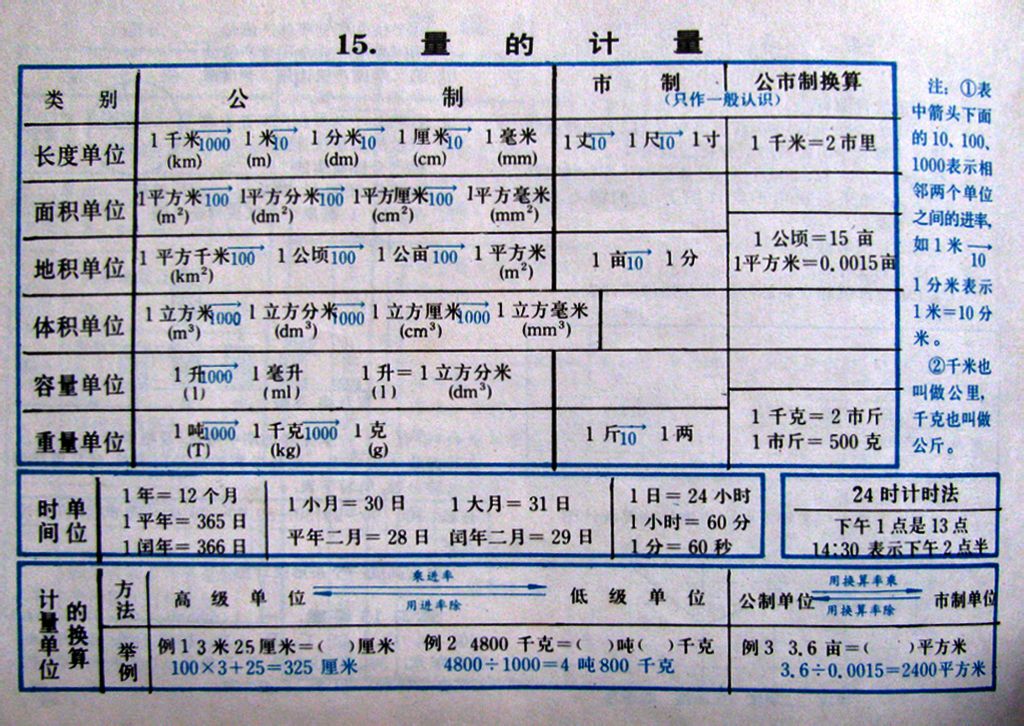 15. 量 的 计 量
类 别 公 制 市 制 公市制换算
(只作一般认识)
长度单位 1千米→1000 1米→10 1分米→10 1厘米→10 1毫米 1丈→10 1尺→10 1寸 1千米=2市里
(km) (m) (dm) (cm) (mm)
面积单位 1平方米→100 1平方分米→100 1平方厘米→100 1平方毫米
(m²) (dm²) (cm²) (mm²)
地积单位 1平方千米→100 1公顷→100 1公亩→100 1平方米 1亩→10 1分 1公顷=15亩
(km²) (m²) 1平方米=0.0015亩
体积单位 1立方米→1000 1立方分米→1000 1立方厘米→1000 1立方毫米
(m³) (dm³) (cm³) (mm³)
容量单位 1升→1000 1毫升 1升=1立方分米
(l) (ml) (l) (dm³)
重量单位 1吨→1000 1千克→1000 1克 1斤→10 1两 1千克=2市斤
(T) (kg) (g) 1市斤=500克
注:①表
中箭头下面
的10、100、
1000表示相
邻两个单位
之间的进率,
如1米→
10
1分米表示
1米=10分
米。
②千米也
叫做公里,
千克也叫做
公斤。
时间单位
1年=12个月
1平年=365日
1闰年=366日
1小月=30日 1大月=31日
平年二月=28日 闰年二月=29日
1日=24小时
1小时=60分
1分=60秒
24时计时法
下午1点是13点
14:30表示下午2点半
计量单位的换算
方法 高级单位 乘进率 低级单位 公制单位 用换算率乘 市制单位
用进率除 用换算率除
举例 例1 3米25厘米=( )厘米 例2 4800千克=( )吨( )千克 例3 3.6亩=( )平方米
100×3+25=325厘米 4800÷1000=4吨800千克 3.6÷0.0015=2400平方米